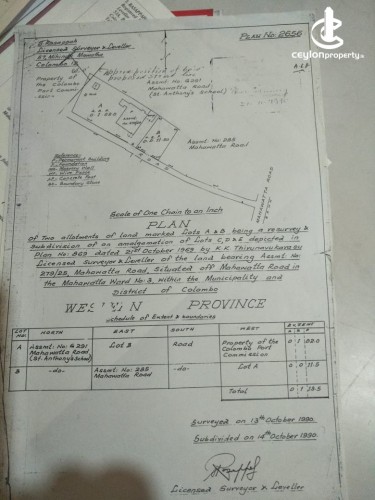 ceylonproperty.lk
Plan No: 2656
Licensed Surveyor & Leveller
Colombo 12.
Property of
the Colombo
Port Commi-
Assmt. No: G 291
Mahawatta Road
(St. Anthony's School)
A. R. P.
A
B
Assmt. No: 285
Mahawatta Road
MAHAWATTA ROAD
Reference:-
Scale of One Chain to an Inch
PLAN
Of Two allotments of land marked Lots A & B being a resurvey &
subdivision of an amalgamation of Lots C, D & E depicted in
Plan No: 865 dated 21st October 1969 by K.K. Thirunavukarasu
Licensed Surveyor & Leveller of the land bearing Assmt. No:
279/25, Mahawatta Road, situated off Mahawatta Road in
the Mahawatta Ward No: 3, within the Municipality and
District of Colombo
WESTERN PROVINCE
Schedule of Extent & boundaries
LOT NO: NORTH EAST SOUTH WEST EXTENT
A R P
A Assmt. No: G 291 Mahawatta Road (St. Anthony's School) Lot B Road Property of the Colombo Port Commission
B -do- Assmt. No: 285 Mahawatta Road -do- Lot A 0 0 11.5
Total
Surveyed on 13th October 1990.
Subdivided on 14th October 1990.
Licensed Surveyor & Leveller